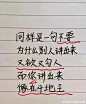 同样是一句不要
为什么别人讲出来
又欲又勾人
而你讲出来
像在斗地主